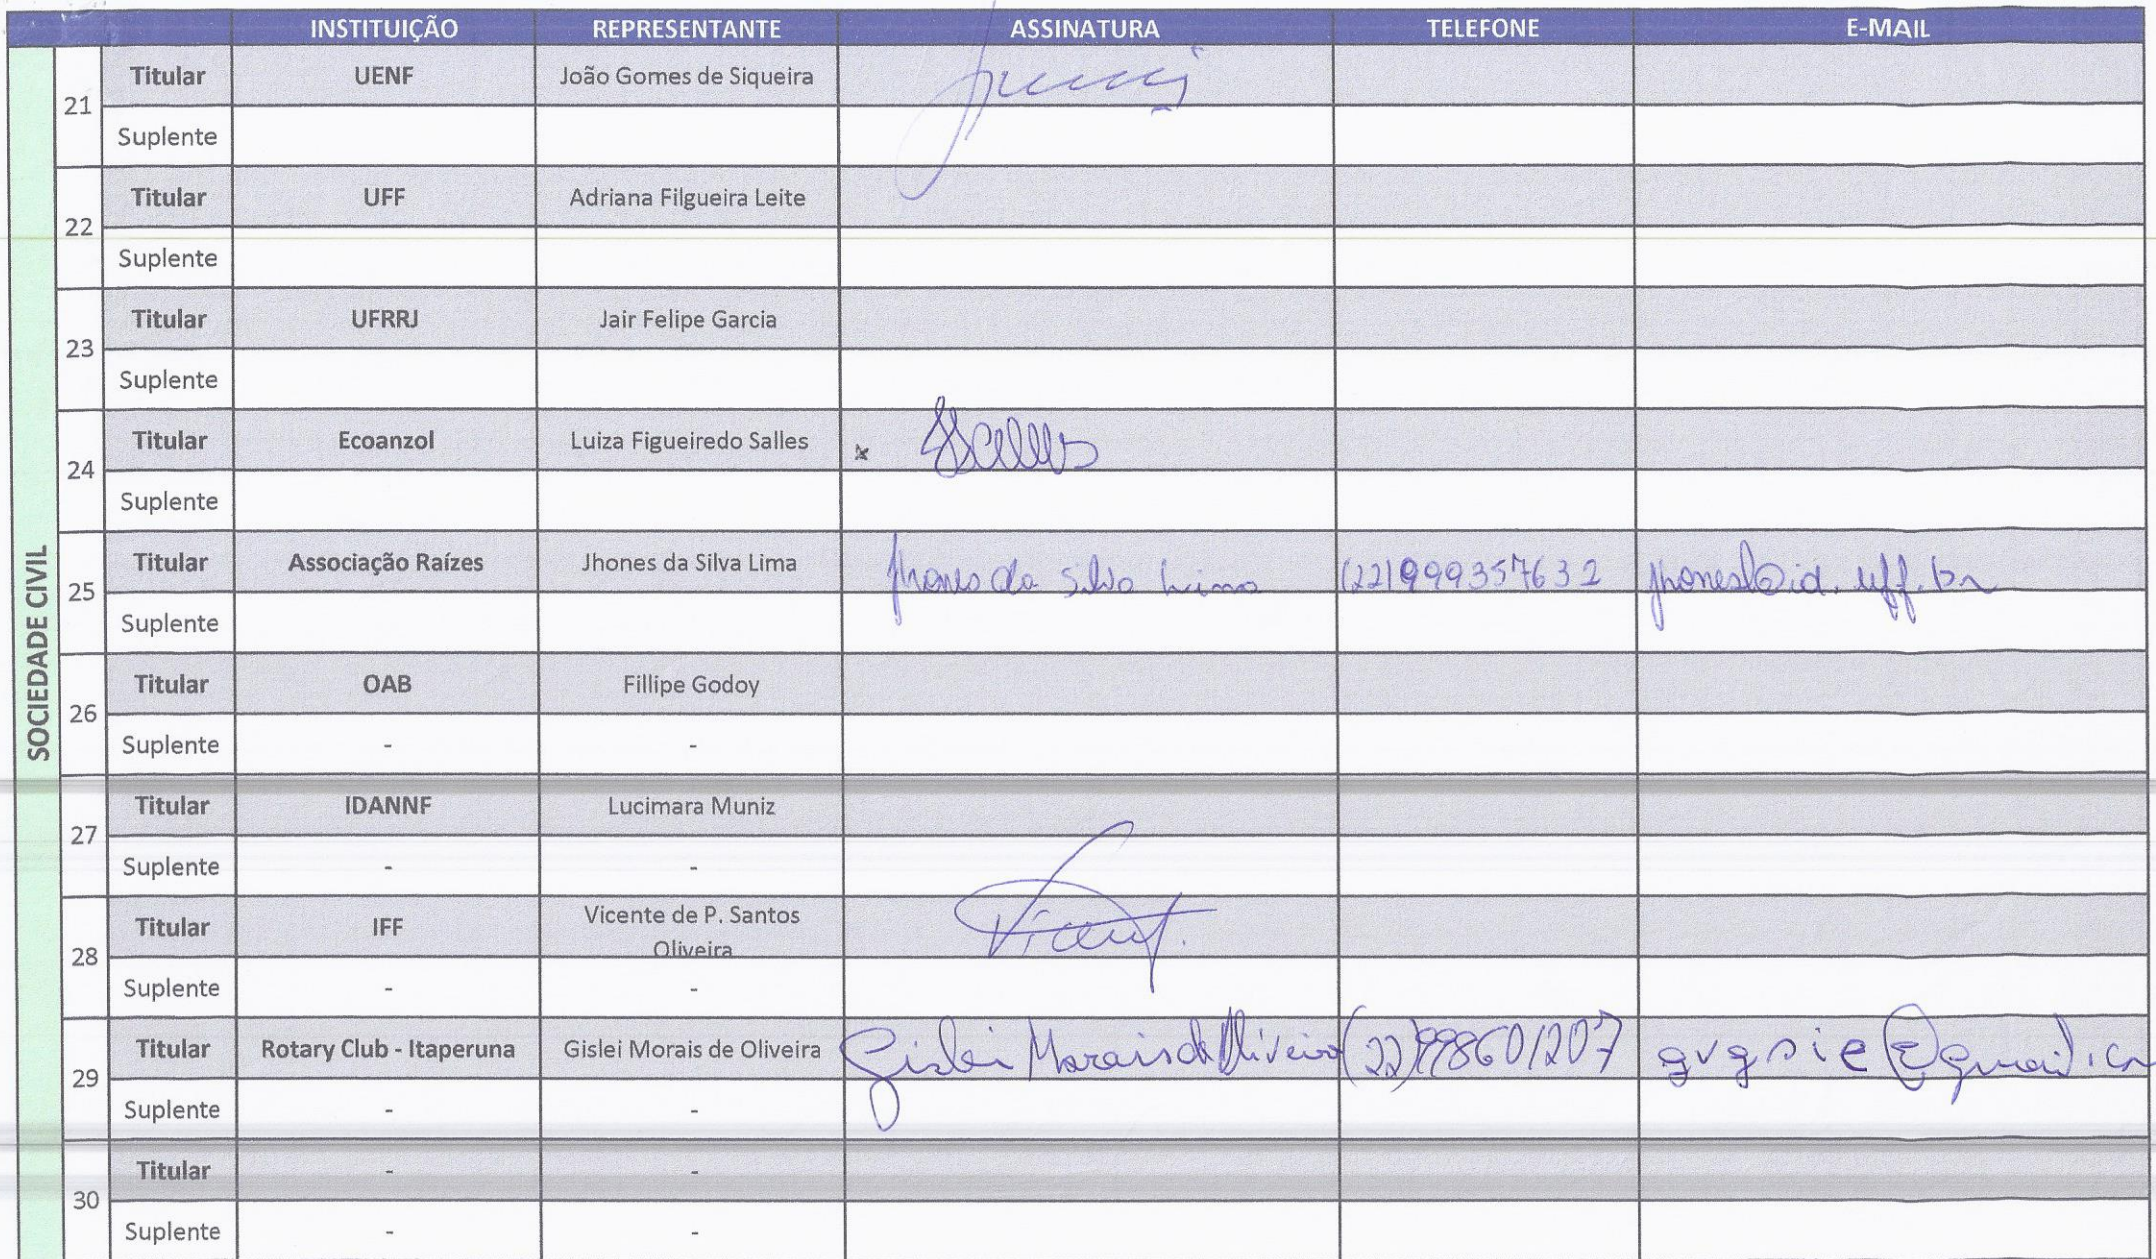 INSTITUIÇÃO REPRESENTANTE ASSINATURA TELEFONE E-MAIL
SOCIEDADE CIVIL
21 Titular UENF João Gomes de Siqueira
Suplente
22 Titular UFF Adriana Filgueira Leite
Suplente
23 Titular UFRRJ Jair Felipe Garcia
Suplente
24 Titular Ecoanzol Luiza Figueiredo Salles
Suplente
25 Titular Associação Raízes Jhones da Silva Lima Jhones da Silva Lima (22)999357632 jhonesl@id.uff.br
Suplente
26 Titular OAB Fillipe Godoy
Suplente - -
27 Titular IDANNF Lucimara Muniz
Suplente - -
28 Titular IFF Vicente de P. Santos
Oliveira
Suplente - -
29 Titular Rotary Club - Itaperuna Gislei Morais de Oliveira Gislei Morais de Oliveira (22)998601207
Suplente - -
30 Titular - -
Suplente - -